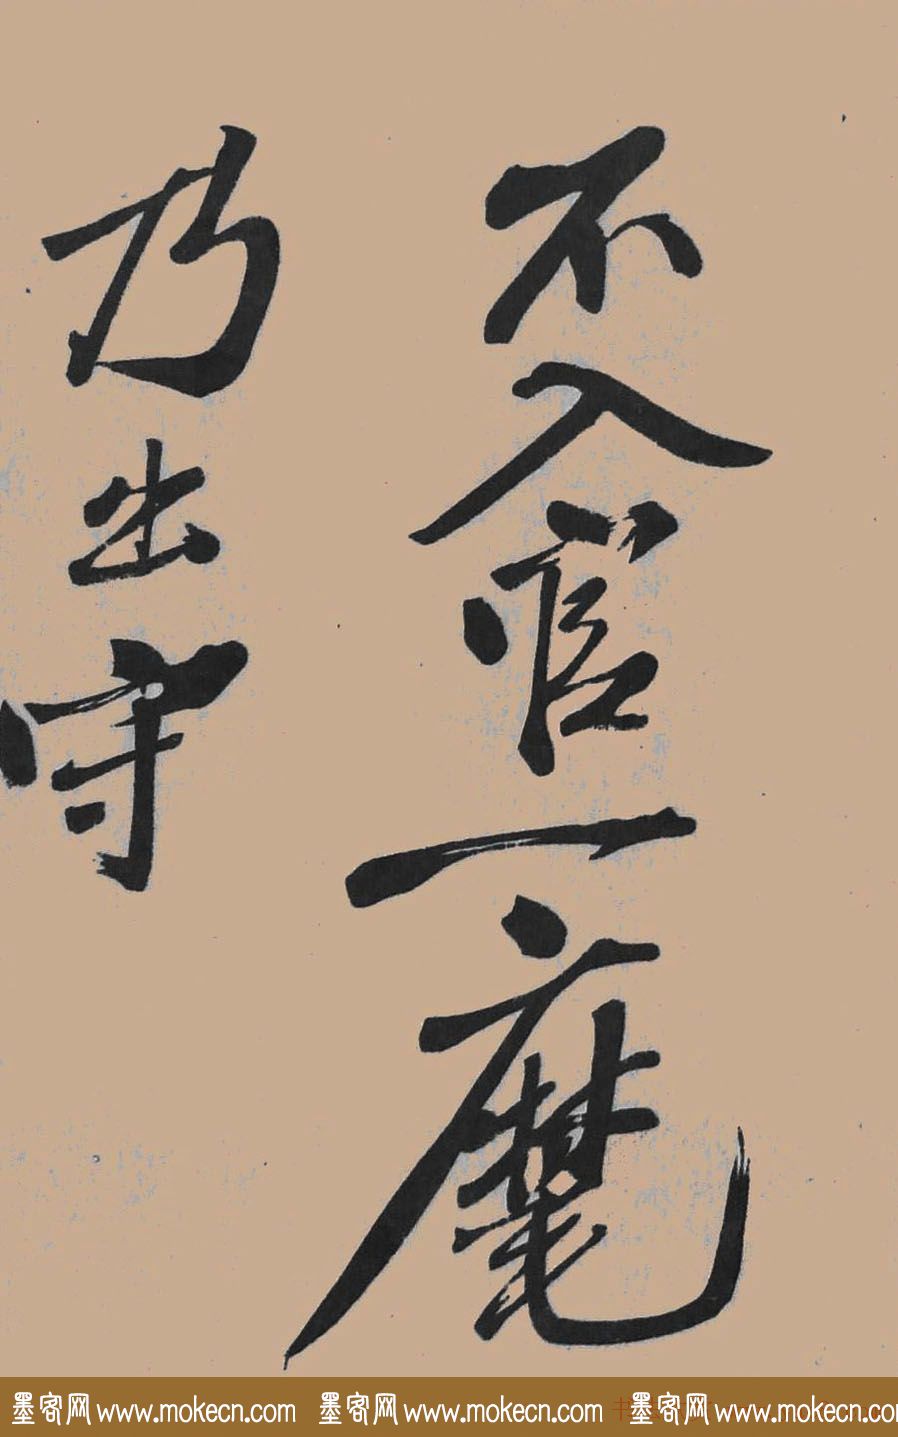 不入官一麾
乃出守
墨客网 www.mokecn.com 墨客网 www.mokecn.com 墨客网 www.mokecn.com